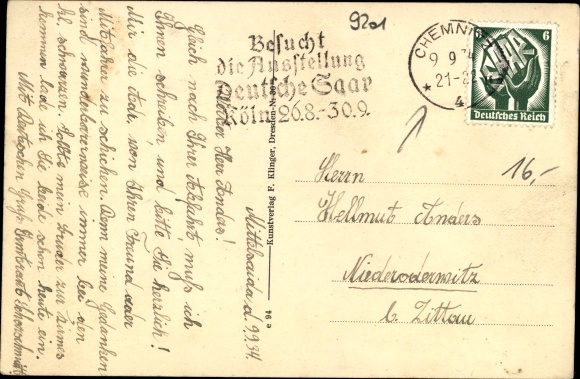 9201
Besucht
die Ausstellung
Deutsche Saar
Köln 26.8.-30.9.
CHEMNITZ
9 9 34
21-22
* 4
6
Deutsches Reich
16,-
Herrn
Hellmut Anders
Niederoderwitz
b. Zittau
Kunstverlag F. Klinger, Dresden-N
e 94
Mittelsaida d. 9.9.34.
Lieber Herr Anders!
Gleich nach Ihrer Abfahrt, muß ich
Ihnen schreiben, und bitte Sie herzlich!
Mir die Adr. von Ihren Freund oder
Mitfahrer zu schicken. Denn meine Gedanken
sind wunderbarerweise immer bei den
kl. schwarzen. Sollte mein Bruder zur
kommen lad ich Sie beide schon heute ein.
Mit Deutschen Gruß